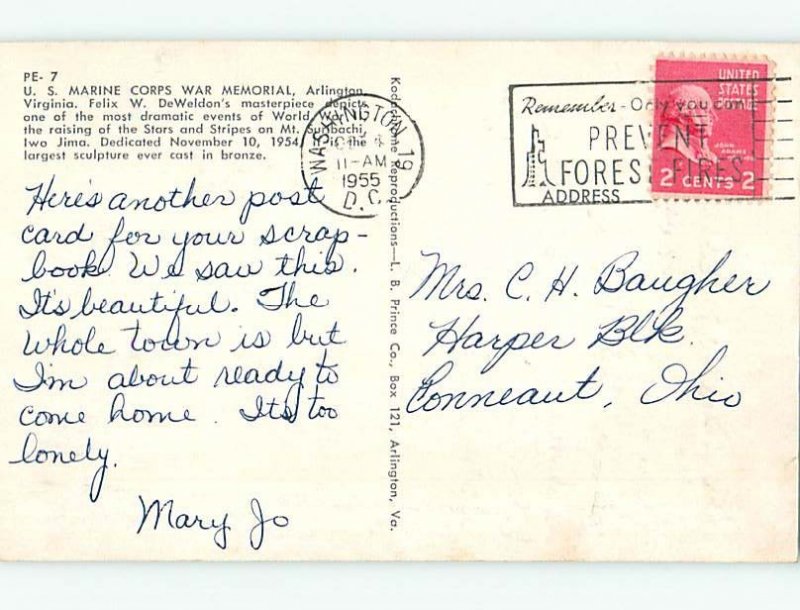 PE- 7
U. S. MARINE CORPS WAR MEMORIAL, Arlington,
Virginia. Felix W. DeWeldon's masterpiece depicts
one of the most dramatic events of World War
the raising of the Stars and Stripes on Mt. Suribachi,
Iwo Jima. Dedicated November 10, 1954. is the
largest sculpture ever cast in bronze.
Here's another post
card for your scrap-
book. We saw this.
It's beautiful. The
whole town is but
I'm about ready to
come home. Its too
lonely.
Mary Jo
Kodachrome Reproductions—L. B. Prince Co., Box 121, Arlington, Va.
WASHINGTON 19
11-AM
1955
D.C.
Remember-Only you can
PREVENT
FOREST FIRES
ADDRESS
UNITED
STATES
POSTAGE
JOHN ADAMS
2 CENTS 2
Mrs. C. H. Baugher
Harper Blk.
Conneaut, Ohio